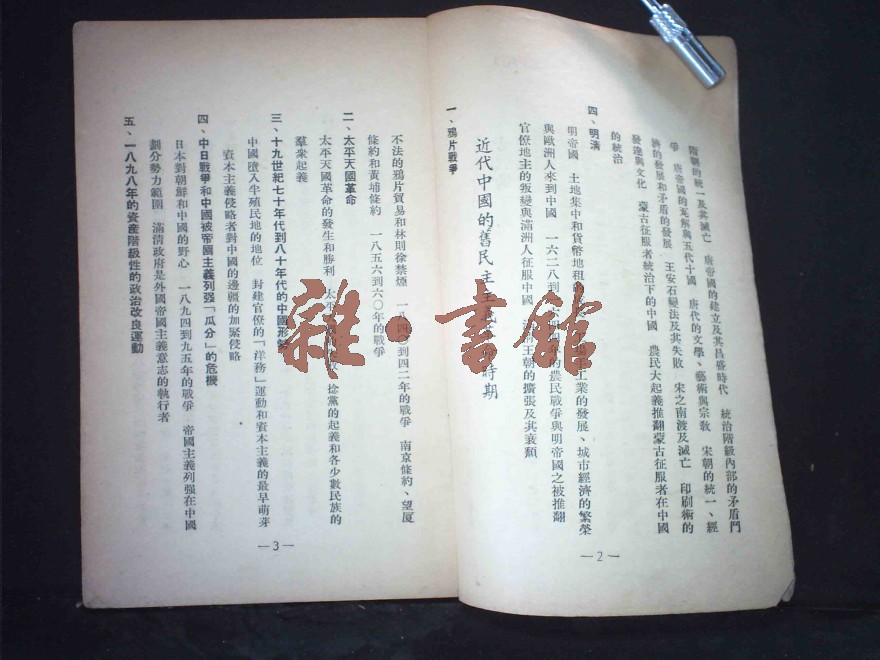 隋朝的統一及其滅亡　唐帝國的建立及其昌盛時代　統治階級內部的矛盾鬥
爭　唐帝國的瓦解與五代十國　唐代的文學、藝術與宗敎　宋朝的統一、經
濟的發展和矛盾的發展　王安石變法及其失敗　宋之南渡及滅亡　印刷術的
發達與文化　蒙古征服者統治下的中國　農民大起義推翻蒙古征服者在中國
的統治
四、明淸
明帝國　土地集中和貨幣地租的　工業的發展、城市經濟的繁榮
與歐洲人來到中國　一六二八到一六四四年的農民戰爭與明帝國之被推翻
官僚地主的叛變與滿洲人征服中國　王朝的擴張及其衰頹
近代中國的舊民主主義革命時期
一、鴉片戰爭
不法的鴉片貿易和林則徐禁煙　一八四〇到四二年的戰爭　南京條約、望厦
條約和黃埔條約　一八五六到六〇年的戰爭
二、太平天國革命
太平天國革命的發生和勝利　太平　捻黨的起義和各少數民族的
羣衆起義
三、十九世紀七十年代到八十年代的中國形勢
中國墮入半殖民地的地位　封建官僚的「洋務」運動和資本主義的最早萌芽
資本主義侵略者對中國的邊疆的加緊侵略
四、中日戰爭和中國被帝國主義列强「瓜分」的危機
日本對朝鮮和中國的野心　一八九四到九五年的戰爭　帝國主義列强在中國
劃分勢力範圍　滿淸政府是外國帝國主義意志的執行者
五、一八九八年的資產階級性的政治改良運動
—2—
—3—
雜·書館